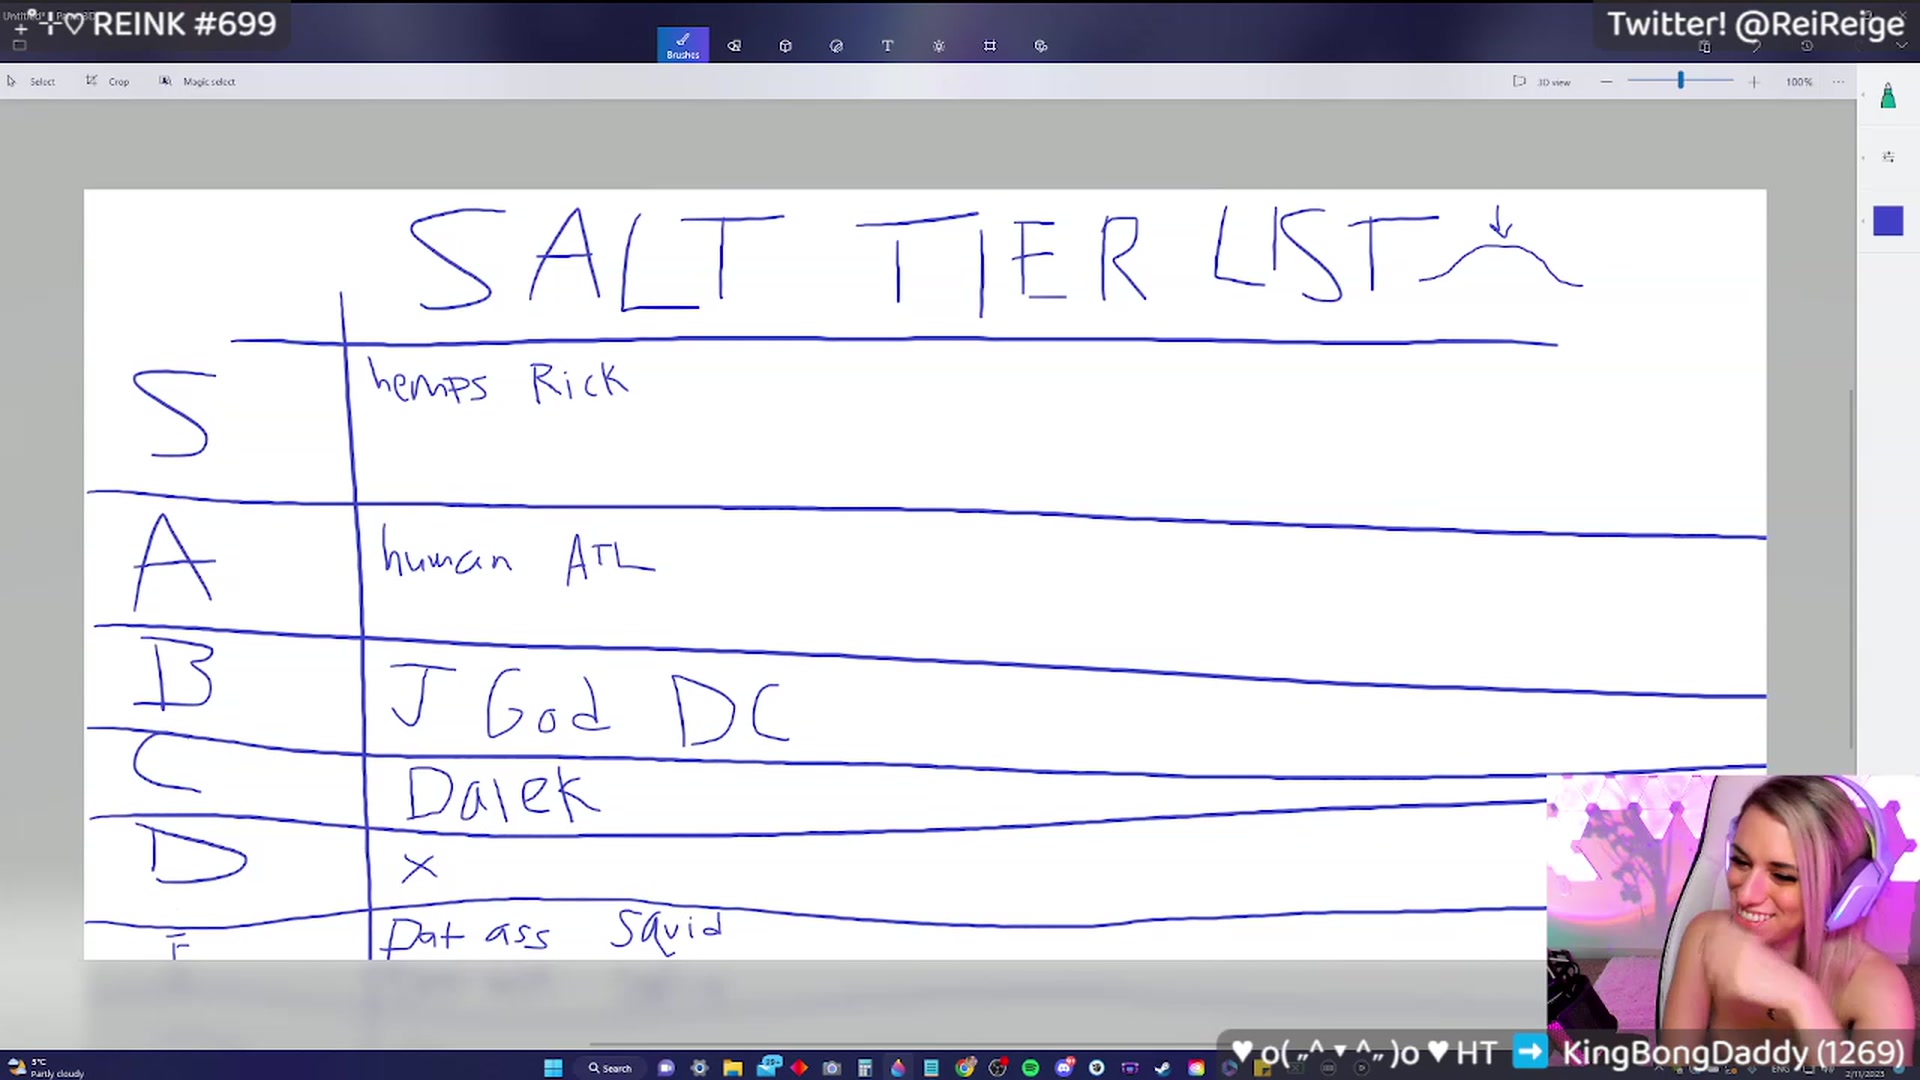 ♡ REINK #699
Twitter! @ReiReige
Brushes
Select Crop Magic select
3D view 100%
SALT TIER LIST
S hemps Rick
A human ATL
B J God DC
C Dalek
D x
F Dat ass Squid
♥ o(˶^▾^˶)o ♥ HT ➡ KingBongDaddy (1269)
5°C
Partly cloudy
Search
ENG
2/11/2023